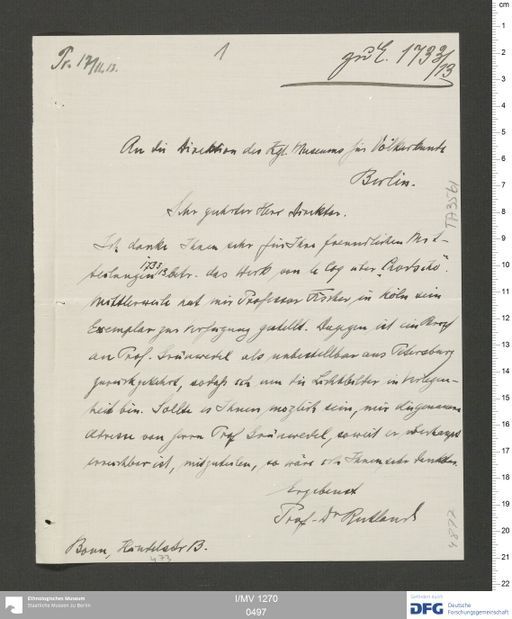 Pr. 17/11.13.
1
zu E. 1733/13
An die Direktion des Kgl. Museums für Völkerkunde
Berlin.
Sehr geehrter Herr Direktor.
Ich danke Ihnen sehr für Ihre freundlichen Mit-
teilungen 1733/13 betr. das Werk von le Coq über „Chotscho“.
Mittlerweile hat mir Professor Fischer in Köln sein
Exemplar zur Verfügung gestellt. Dagegen ist ein Brief
an Prof. Grünwedel als unbestellbar aus Petersburg
zurückgekehrt, sodaß ich um die Lichtbilder in Verlegen-
heit bin. Sollte es Ihnen möglich sein, mir die genaue
Adresse von Herrn Prof Grünwedel, soweit er überhaupt
erreichbar ist, mitzuteilen, so wäre ich Ihnen sehr dankbar.
Ergebenst
Prof. Dr
Bonn, B.
473
TA3561
4877
cm
1
2
3
4
5
6
7
8
9
10
11
12
13
14
15
16
17
18
19
20
21
22
Ethnologisches Museum
Staatliche Museen zu Berlin
I/MV 1270
0497
Gefördert durch
DFG Deutsche
Forschungsgemeinschaft